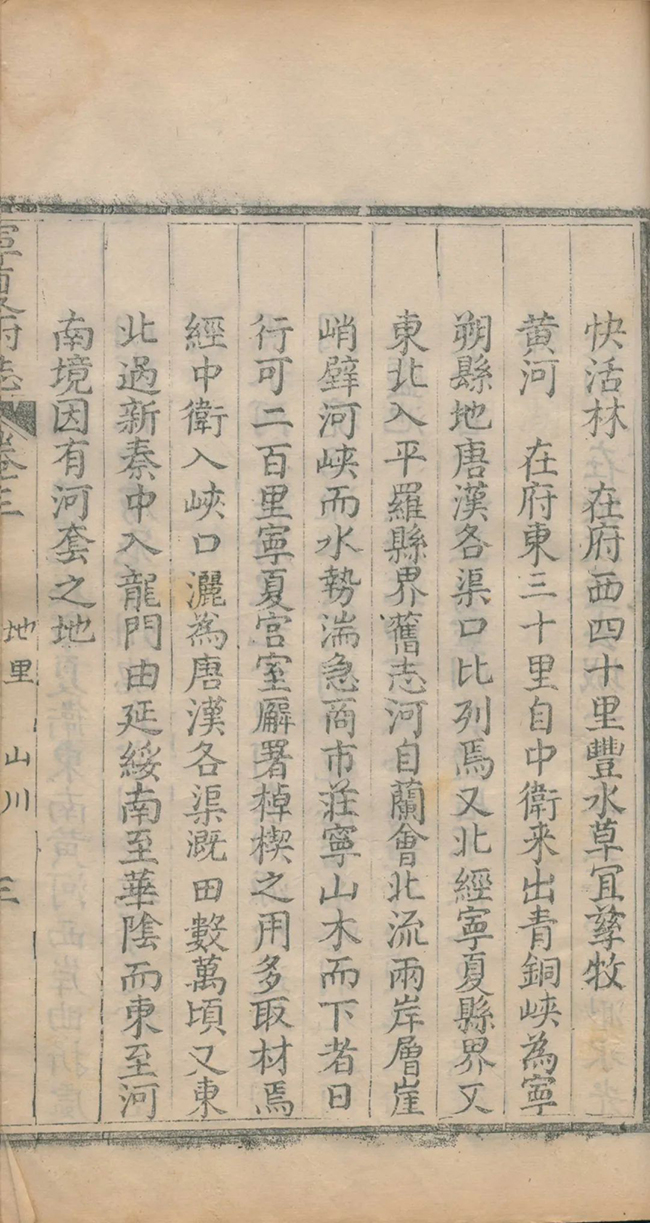 快活林　在府西四十里豐水草宜孳牧
黄河　在府東三十里自中衛来出青銅峽為寧
朔縣地唐漢各渠口比列焉又北經寧夏縣界又
東北入平羅縣界舊志河自蘭會北流兩岸層崖
峭壁河峽而水勢湍急商市莊寧山木而下者日
行可二百里寧夏宫室廨署棹楔之用多取材焉
經中衛入峽口灑為唐漢各渠溉田數萬頃又東
北過新秦中入龍門由延綏南至華陰而東至河
南境因有河套之地
寧夏府志　卷三　地里　山川　三